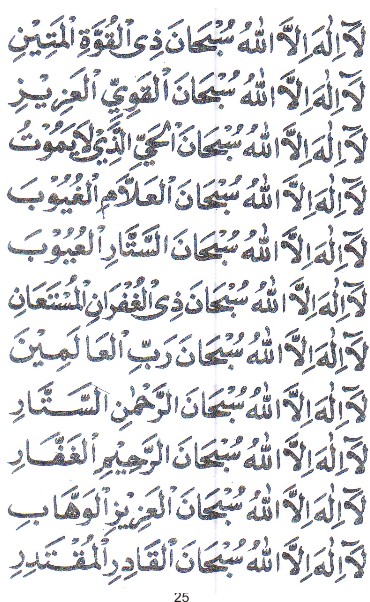 لَآ اِلٰهَ اِلَّا اللّٰهُ سُبْحَانَ ذِی الْقُوَّةِ الْمَتِيْنِ
لَآ اِلٰهَ اِلَّا اللّٰهُ سُبْحَانَ الْقَوِيِّ الْعَزِيْزِ
لَآ اِلٰهَ اِلَّا اللّٰهُ سُبْحَانَ الْحَيِّ الَّذِيْ لَا يَمُوْتُ
لَآ اِلٰهَ اِلَّا اللّٰهُ سُبْحَانَ الْعَلَّامِ الْغُيُوْبَ
لَآ اِلٰهَ اِلَّا اللّٰهُ سُبْحَانَ السَّتَّارِ الْعُيُوْبَ
لَآ اِلٰهَ اِلَّا اللّٰهُ سُبْحَانَ ذِی الْغُفْرَانِ الْمُسْتَعَانِ
لَآ اِلٰهَ اِلَّا اللّٰهُ سُبْحَانَ رَبِّ الْعَالَمِيْنَ
لَآ اِلٰهَ اِلَّا اللّٰهُ سُبْحَانَ الرَّحْمٰنِ السَّتَّارِ
لَآ اِلٰهَ اِلَّا اللّٰهُ سُبْحَانَ الرَّحِيْمِ الْغَفَّارِ
لَآ اِلٰهَ اِلَّا اللّٰهُ سُبْحَانَ الْعَزِيْزِ الْوَهَّابِ
لَآ اِلٰهَ اِلَّا اللّٰهُ سُبْحَانَ الْقَادِرِ الْمُقْتَدِرِ
25